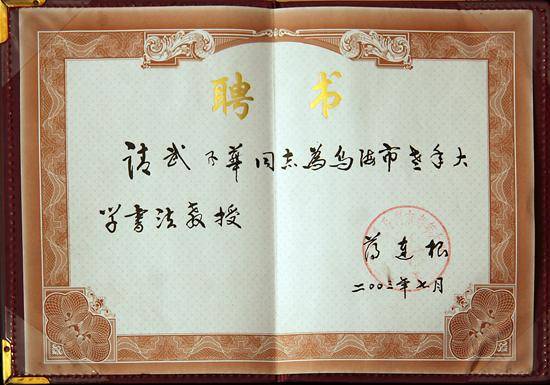 聘书
请武華同志為乌海市老年大
学書法教授
連根
二〇〇三年七月